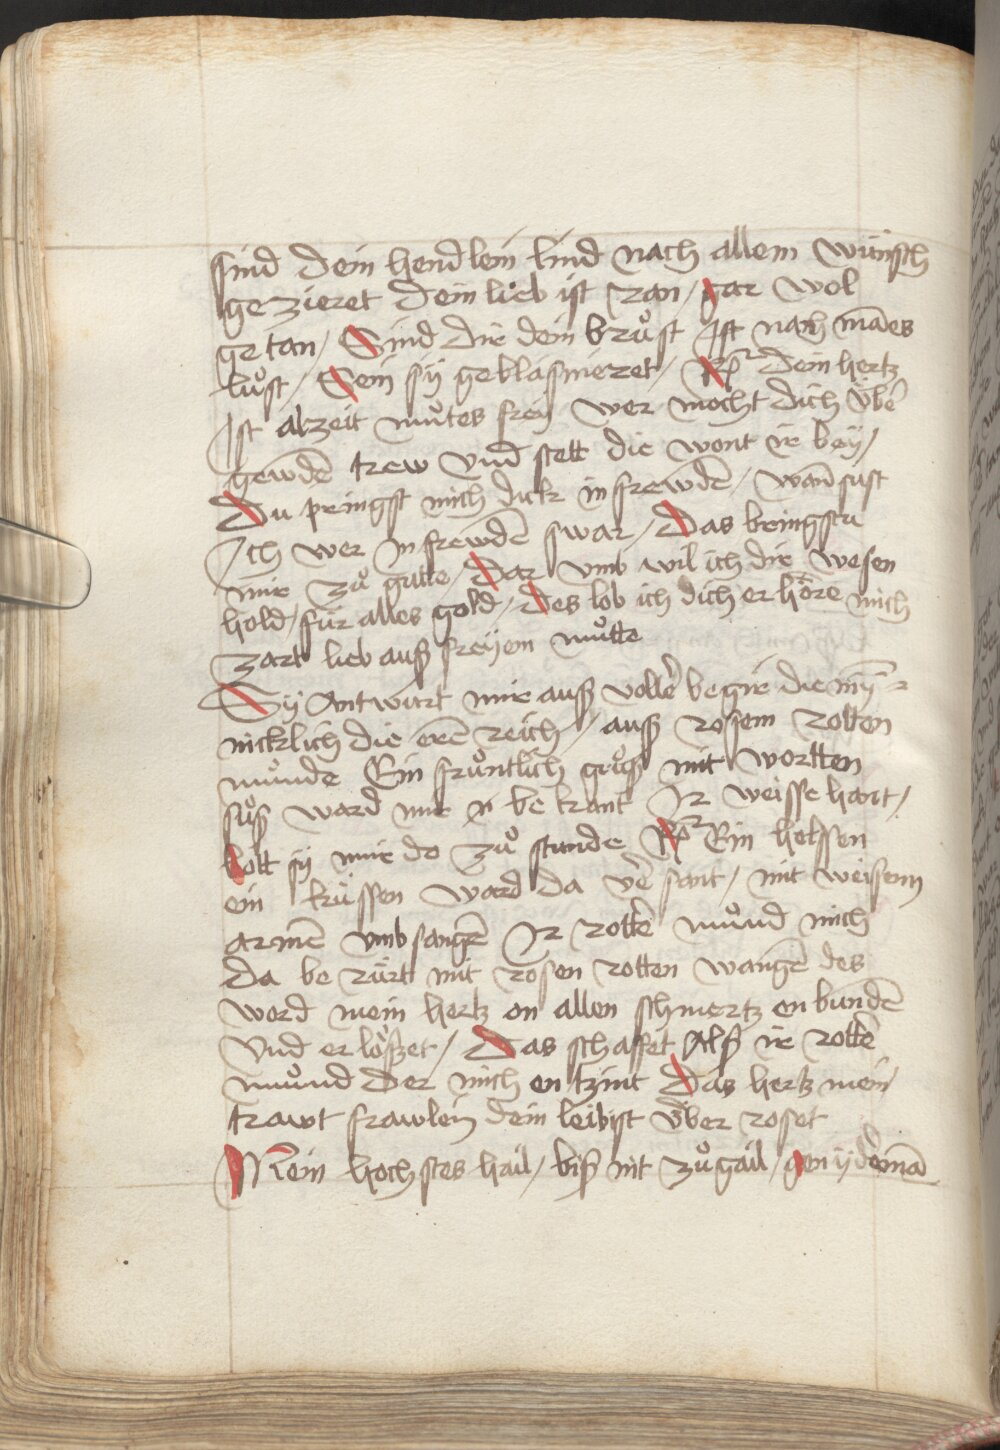 sind dein hendlein lind nach allem wünsch
ge zieret dein lieb ist ran / gar wol
ge tan / Sind dir dein brůst Ist nach mães
lůst / Sein sÿ geblasmieret / Rp̃ dein hertz
Ist alzeit můtes freÿ wer mocht dich v̈bẽ
gewdẽ trew vnd stett die wont ir beÿ /
Du pringst mich dick in frewdẽ / wañ sust
Ich wer In frewdẽ swar / Das bringstu
mir zů gutte / Dar vmb wil ich dir wesen
hold / für alles gold / Des lob ich dich er höre mich
zart lieb auß freÿem můtte
Sÿ Antwurt mir auß vollẽ begir die mÿ̃ =
nicklich die erẽ reich / auß rosem rotten
můnde Ein frůntlich grůß mit wortten
sůß ward mir n be kant Ir weisse hant /
bott sÿ mir do zů stunde Rp̃ Ein helssen
ein küssen ward da vẽ sant / mit weisenn
armẽ vmbfangẽ Ir rottẽ můnd mich
da be rürt mit rosen rotten wangẽ des
word mein hertz on allen schmertz enbundẽ
vnd er lößet / Das schaffet Alß ir rottẽ
můnd der mich en tzint Das hertz mein /
trawt frawlein dein leib ist v̈ber roset
Mein hochstes hail / biß nit zů gail / gen ÿdemã